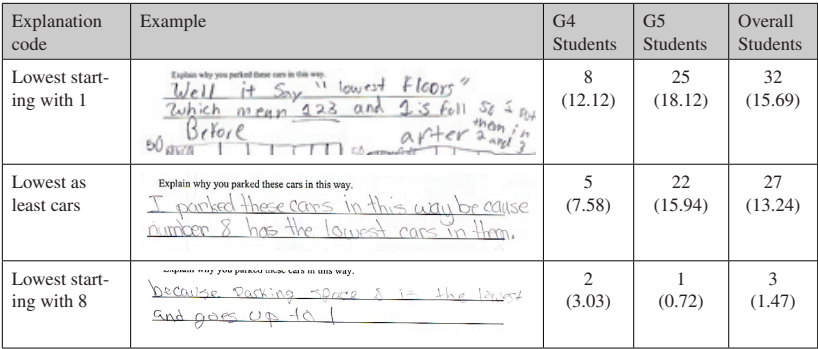 Explanation code Example G4 Students G5 Students Overall Students
Lowest start-
ing with 1
Explain why you parked these cars in this way.
Well it Say "lowest Floors"
Which mean 123 and 1 is foll So I Put
them in
2 and 3
Before after
50
8
(12.12)
25
(18.12)
32
(15.69)
Lowest as
least cars
Explain why you parked these cars in this way.
I parked these cars in this way because
number 8 has the lowest cars in them.
5
(7.58)
22
(15.94)
27
(13.24)
Lowest start-
ing with 8
Explain why you parked these cars in this way.
because Parking space 8 is the lowest
and goes up to 1
2
(3.03)
1
(0.72)
3
(1.47)